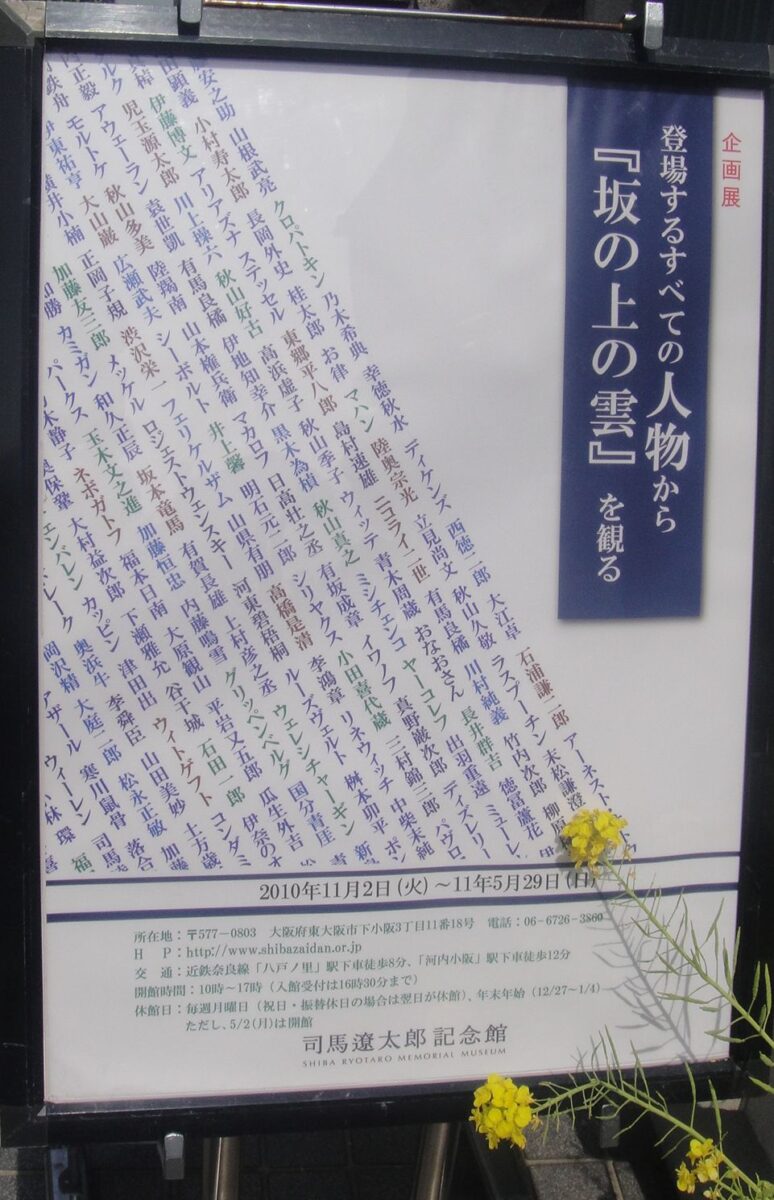 企画展
登場するすべての人物から
『坂の上の雲』を観る
安之助 山根武亮 クロパトキン 乃木希典 幸徳秋水 ディケンズ 西徳二郎 大江卓 石浦謙二郎 アーネスト
田顕義 小村寿太郎 長岡外史 桂太郎 お律 マハン 陸奥宗光 立見尚文 秋山久敬 ラスプーチン 末松謙澄
伊藤博文 アリアズナ ステッセル 東郷平八郎 島村速雄 ニコライ二世 有馬良橘 川村純義 竹内次郎 柳原
児玉源太郎 川上操六 秋山好古 高浜虚子 秋山季子 ウィッテ 青木周蔵 おなおさん 長井群吉 徳富蘆花
ルク アウェーラン 袁世凱 有馬良橘 伊地知幸介 黒木為楨 秋山真之 ミシチェンコ ヤーコレフ 出羽重遠 ミューレ
正毅 モルトケ 秋山多美 陸羯南 山本権兵衛 マカロフ 日高壮之丞 有坂成章 イワノフ 真野巌次郎 ディズレリー
鉄舟 大山巌 広瀬武夫 シーボルト 井上馨 明石元二郎 シリヤクス 小田喜代蔵 三村錦三郎 パヴロ
伊東祐亨 正岡子規 渋沢栄一 フェリケルザム 山県有朋 高橋是清 李鴻章 リネウィッチ 中柴末純
横井小楠 加藤友三郎 メッケル ロジェストウェンスキー 河東碧梧桐 ルーズヴェルト 桝本卯平 ポン
勝 カミガン 和久正辰 坂本竜馬 有賀長雄 上村彦之丞 ウェレシチャーギン
パークス 玉木文之進 加藤恒忠 内藤鳴雪 グリッペンベルグ 国分青厓
乃木静子 ネボガトフ 福本日南 大原観山 平岩又五郎 瓜生外吉
奥保鞏 大村益次郎 下瀬雅允 谷干城 石田一郎 伊奈の
エンバレン カッピン 津田出 ウィトゲフト コンダミ
レーク 奥浜牛 李舜臣 山田美妙 土方歳
岡沢精 大庭二郎 松永正敏 加藤
アザール 寒川鼠骨 落合
ウィーレン 司馬
小林環
福
2010年11月2日(火)～11年5月29日(日)
所在地：〒577－0803 大阪府東大阪市下小阪3丁目11番18号 電話：06-6726-3860
H P：http://www.shibazaidan.or.jp
交 通：近鉄奈良線「八戸ノ里」駅下車徒歩8分、「河内小阪」駅下車徒歩12分
開館時間：10時～17時（入館受付は16時30分まで）
休館日：毎週月曜日（祝日・振替休日の場合は翌日が休館）、年末年始（12/27～1/4）
ただし、5/2(月)は開館
司馬遼太郎記念館
SHIBA RYOTARO MEMORIAL MUSEUM